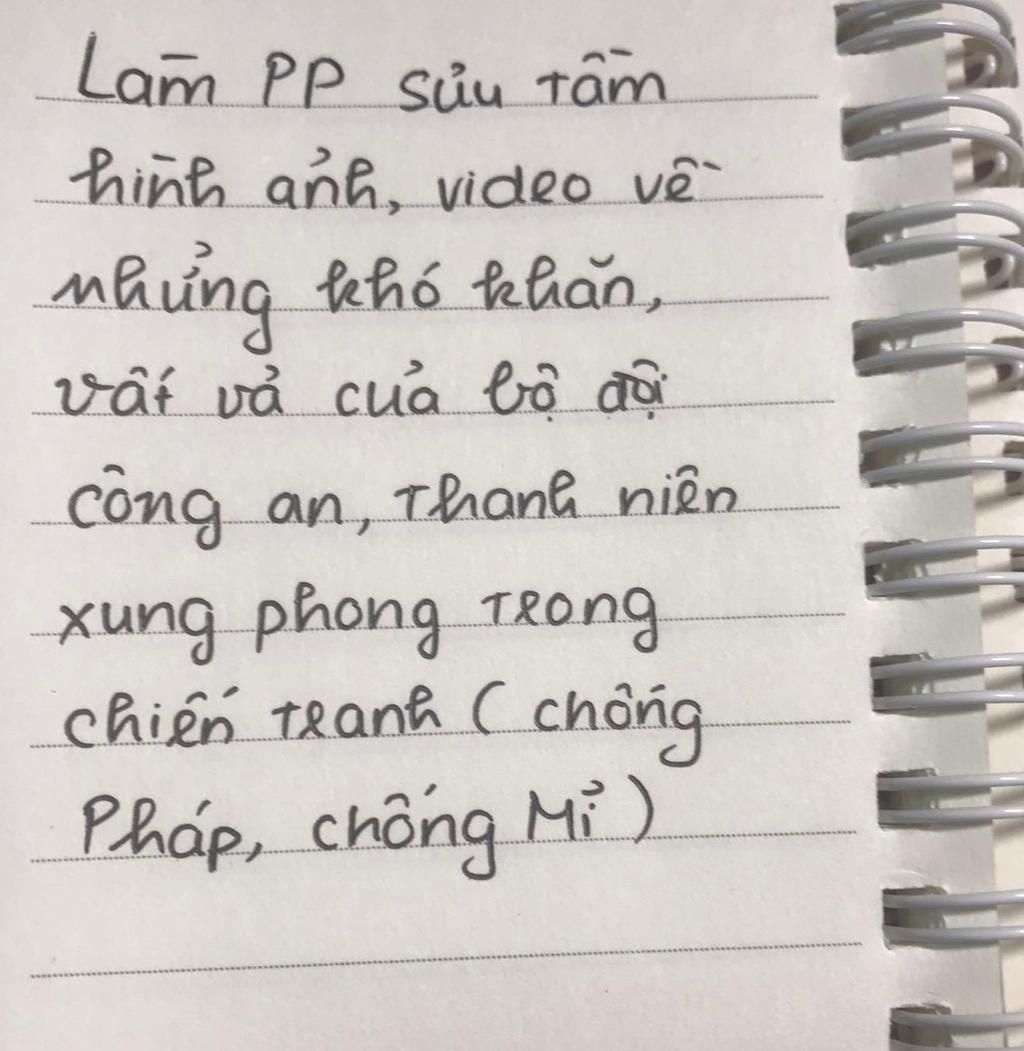 Làm PP sủu tầm
hình ảnh, video về
nhưửng khó khăn,
vất vả của bộ đội
công an, thanh niên
xung phong trong
chiến tranh ( chống
Pháp, chống Mỉ )